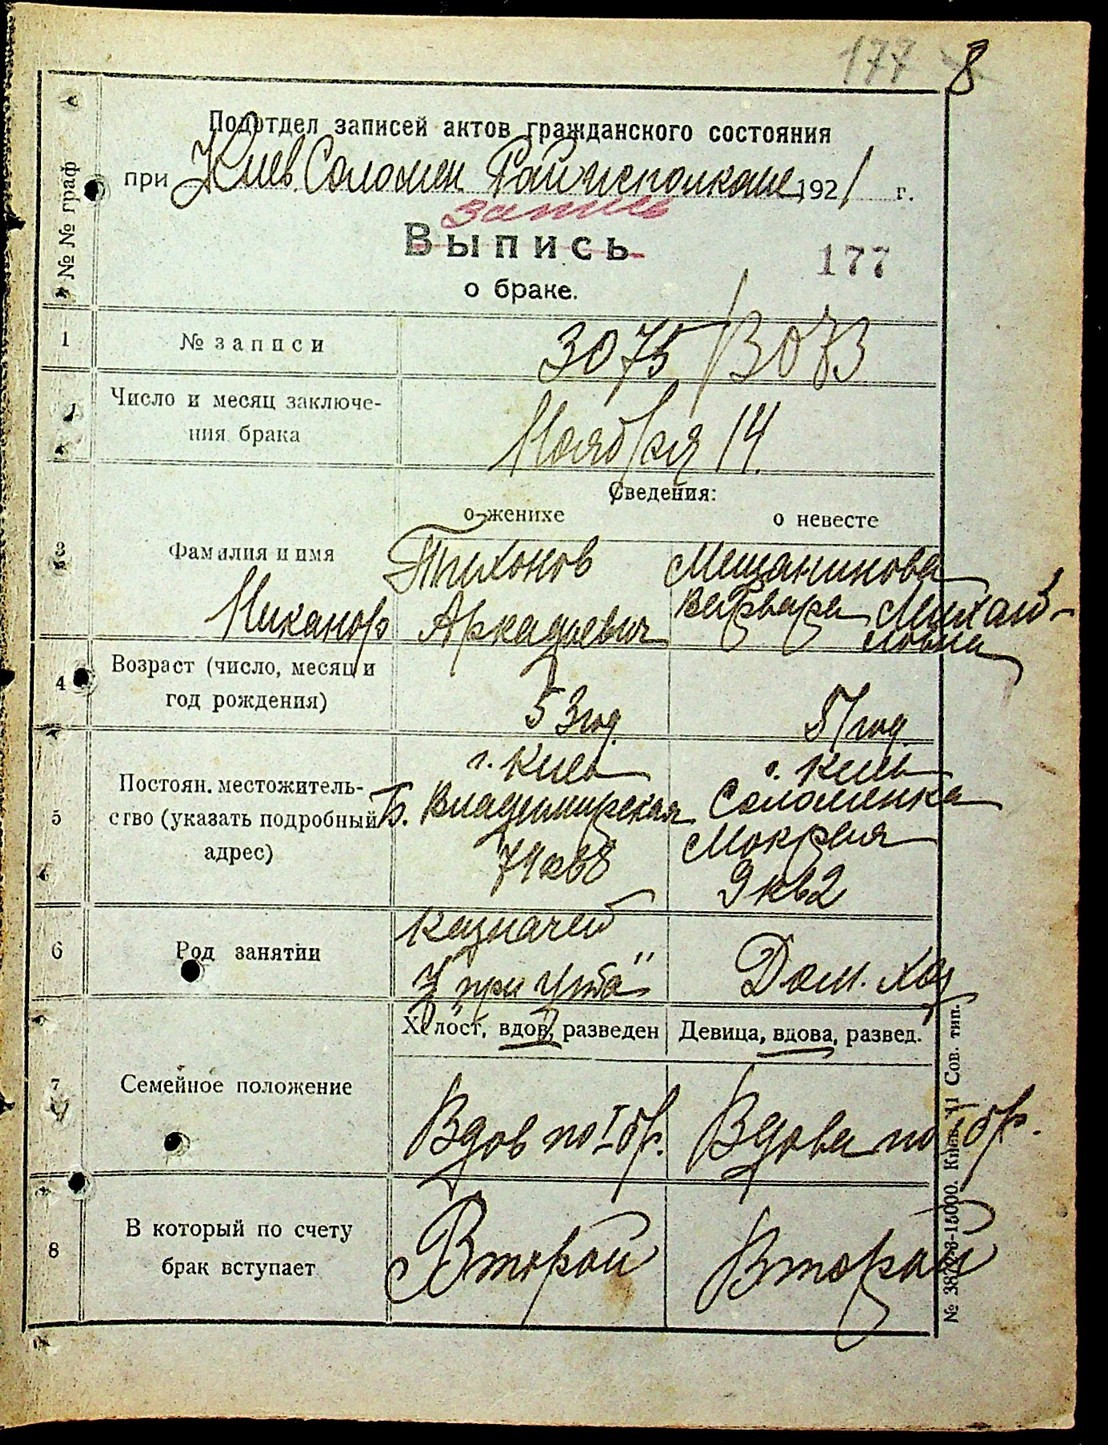 177 8
Подотдел записей актов гражданского состояния
при Киев. Соломен Райисполкоме 1921 г.
запись
Выпись
177
о браке.
№ № граф
1 № записи 3075 / 3073
Число и месяц заключе-
ния брака
Ноября 14.
Сведения:
о женихе о невесте
3 Фамилия и имя Тихонов Мещанинова
Никанор Аркадиевич Варвара Михай-
ловна
4 Возраст (число, месяц и
год рождения)
53 год. 51 год.
5 Постоян. местожитель-
ство (указать подробный
адрес)
г. Киев г. Киев
Б. Владимирская Соломенка
74 кв 8 Мокрая
9 кв 2
6 Род занятии казначей Дом. хоз
Холост, вдов, разведен Девица, вдова, развед.
7 Семейное положение Вдов по I бр. Вдова по I бр.
8 В который по счету
брак вступает
Второй Второй
Киев. 11 Сов. тип.